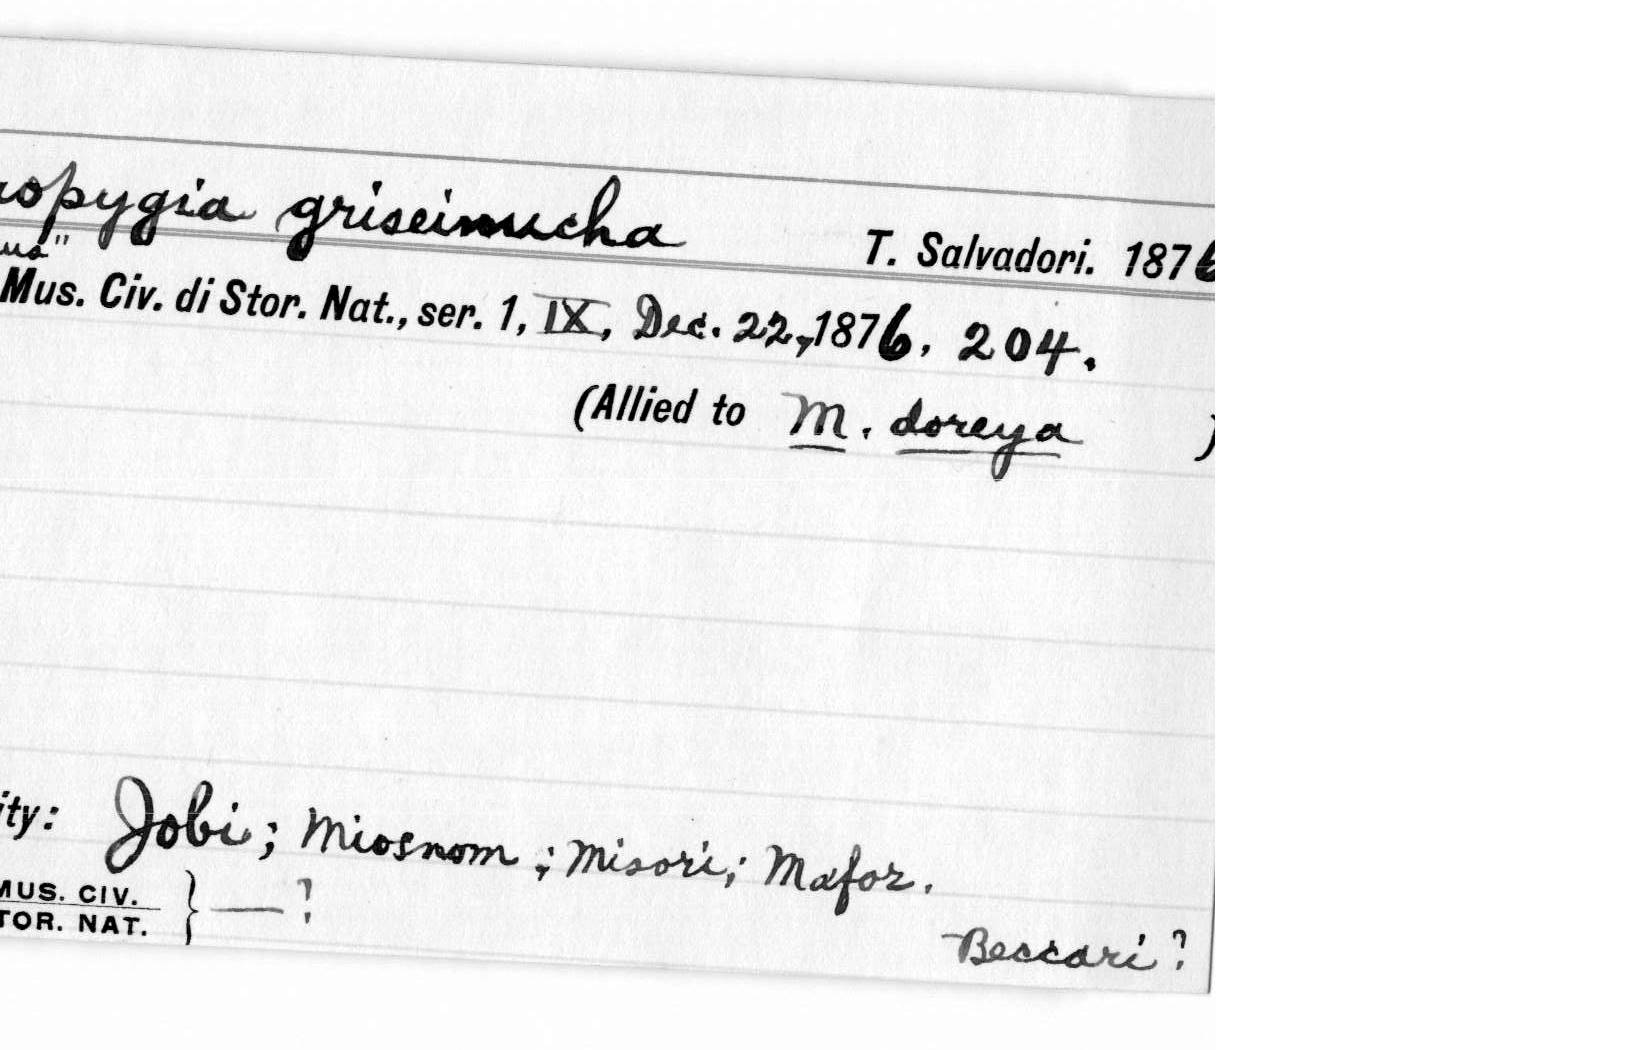 opygia griseinucha T. Salvadori. 1876
us"
Mus. Civ. di Stor. Nat., ser. 1, IX, Dec. 22, 1876, 204.
(Allied to M. doreya )
ity: Jobi; Miosnom; Misori; Mafor.
MUS. CIV. } — ?
TOR. NAT.
Beccari?